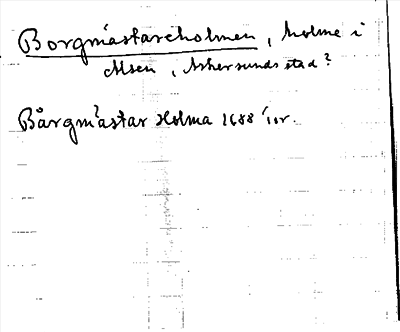 Borgmästareholmen, holme i
Alsen, Askersunds stad?
Bårgmästar Holma 1688